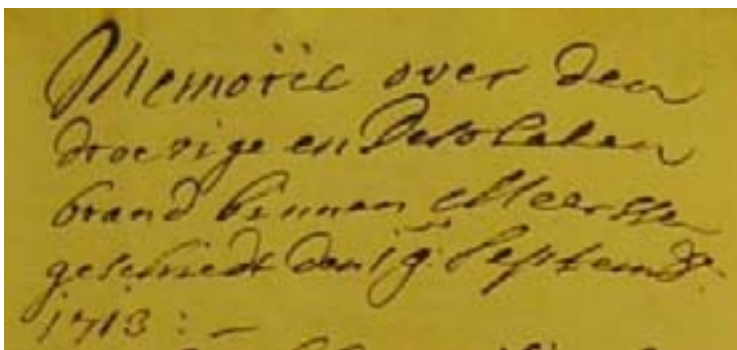 Memorië over den
droevige en Desolaten
brand binnen Meerssen
geschiedt den 19 Septemb
1713 : -